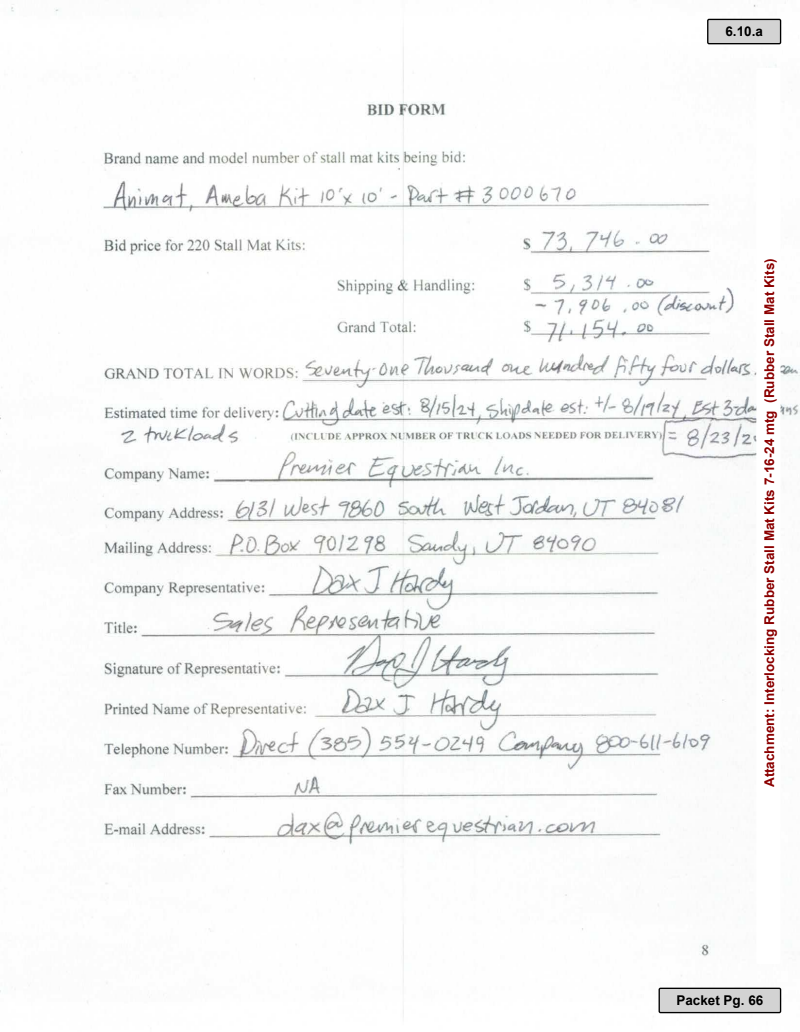 6.10.a
BID FORM
Brand name and model number of stall mat kits being bid:
Animat, Ameba Kit 10'x 10' - Part # 3000670
Bid price for 220 Stall Mat Kits: $ 73,746.00
Shipping & Handling: $ 5,314.00
- 7,906.00 (discount)
Grand Total: $ 71,154.00
GRAND TOTAL IN WORDS: Seventy-One Thousand one hundred fifty four dollars.
Estimated time for delivery: Cutting date est: 8/15/24, Shipdate est: +/- 8/19/24, Est 3-da
2 truckloads (INCLUDE APPROX NUMBER OF TRUCK LOADS NEEDED FOR DELIVERY) = 8/23/2
Company Name: Premier Equestrian Inc.
Company Address: 6131 West 9860 South West Jordan, UT 84081
Mailing Address: P.O. Box 901298 Sandy, UT 84090
Company Representative: Dax J Hardy
Title: Sales Representative
Signature of Representative: Dax J Hardy
Printed Name of Representative: Dax J Hardy
Telephone Number: Direct (385) 554-0249 Company 800-611-6109
Fax Number: NA
E-mail Address: dax@premierequestrian.com
8
Packet Pg. 66
Attachment: Interlocking Rubber Stall Mat Kits 7-16-24 mtg (Rubber Stall Mat Kits)